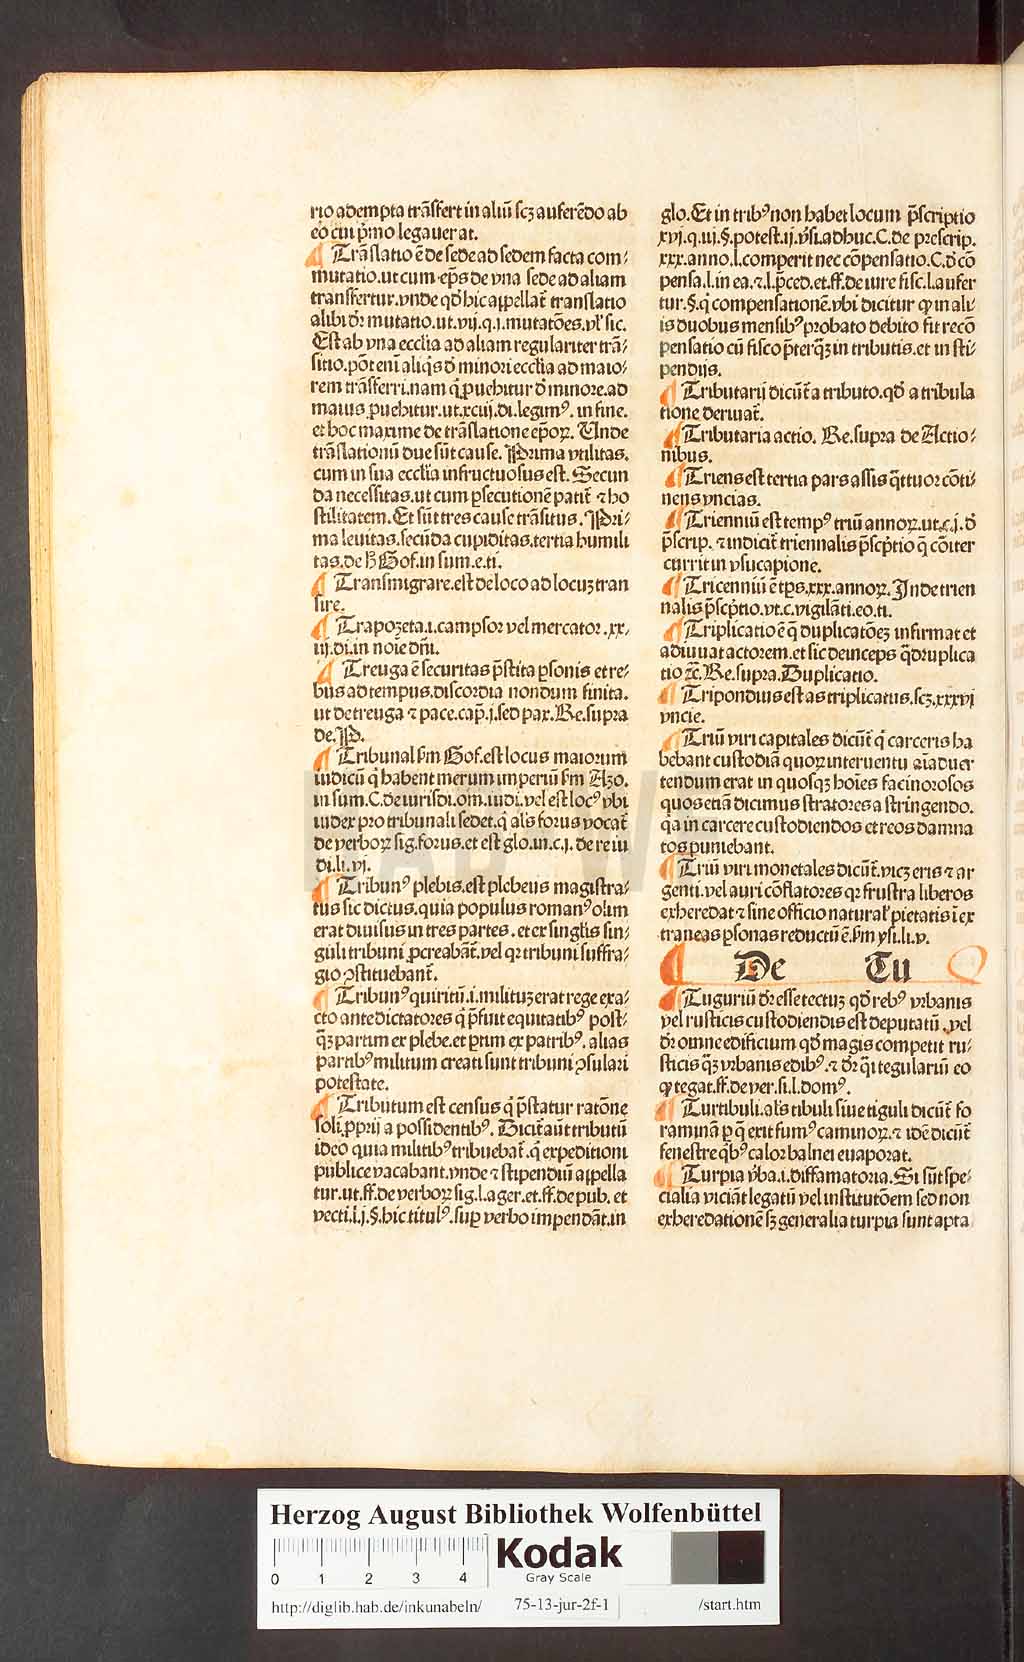 rio adempta trāsfert in aliū scꝫ auferēdo ab
eo cui p̄mo legauerat.
¶ Trāslatio ē de sede ad sedem facta com⸗
mutatio. ut cum ep̄s de vna sede ad aliam
transfertur. vnde qd̕ hic appellat̄ translatio
alibi dr̄ mutatio. ut. vij. q. i. mutatōes. vl̕ sic.
Est ab vna ecclīa ad aliam regulariter trā⸗
sitio. pōt enī aliq̄s d̕ minori ecclīa ad maio⸗
rem trāsferri. nam q̄ ꝓuehitur d̕ minore. ad
maius ꝓuehitur. ut. xciij. di. legimꝰ. in fine.
et hoc maxime de trāslatione ep̄oꝝ. Unde
trāslationū due sūt cause. Prima vtilitas.
cum in sua ecclīa infructuosus est. Secun
da necessitas. ut cum ꝑsecutionē patit̄ ⁊ ho
stilitatem. Et sūt tres cause trāsitus. Pri⸗
ma leuitas. secūda cupiditas. tertia humili
tas. de h̕ Gof. in sum. e. ti.
¶ Transmigrare. est de loco ad locuꝫ tran
sire.
¶ Trapoꝫeta. i. campsor vel mercator. xx⸗
iij. di. in noīe dn̄i.
¶ Treuga ē securitas p̄stita ꝑsonis et re⸗
bus ad tempus. discordia nondum finita.
ut de treuga ⁊ pace. cap̄. j. sed pax. Re. supra
de. P.
¶ Tribunal s̄m Gof. est locus maiorum
iudicū q̄ habent merum imperiū s̄m Aꝫo.
in sum. C. de iurisdi. om. iudi. vel est locꝰ vbi
iudex pro tribunali sedet. q̄ al̕s forus vocat̄
de verboꝝ sig. forus. et est glo. in. c. j. de re iu
di. li. vi.
¶ Tribunꝰ plebis. est plebeius magistra⸗
tus sic dictus. quia populus romanꝰ olim
erat diuisus in tres partes. et ex singlis sin⸗
guli tribuni ꝓcreabāt̄. vel qꝛ tribuni suffra⸗
gio ꝯstituebant̄.
¶ Tribunꝰ quiritū. i. milituꝫ erat rege exa⸗
cto ante dictatores q̄ p̄fuit equitatibꝰ post⸗
q̄ꝫ partim ex plebe. et ꝑtim ex patribꝰ. alias
partibꝰ militum creati sunt tribuni ꝯsulari
potestate.
¶ Tributum est census q̄ p̄statur ratōne
soli ꝓprij a possidentibꝰ. Dicit̄ aūt tributū
ideo quia militibꝰ tribuebat̄. q̄ expeditioni
publice vacabant. vnde ⁊ stipendiū appella
tur. ut. ff. de verboꝝ sig. l. ager. et. ff. de pub. et
vecti. l. j. §. hic titulꝰ. suꝑ verbo impendāt. in
glo. Et in tribꝰ non habet locum p̄scriptio
xvj. q. iij. §. potest. ij. v̕si. adhuc. C. de prescrip.
xxx. anno. l. comperit nec cōpensatio. C. d̕ cō
pensa. l. in ea. ⁊. l. p̄ced. et. ff. de iure fisc. l. aufer
tur. §. q̄ compensationē. vbi dicitur ꝙ in ali⸗
is duobus mensibꝰ probato debito fit recō
pensatio cū fisco p̄terq̄ꝫ in tributis. et in sti⸗
pendijs.
¶ Tributarij dicūt̄ a tributo. qd̕ a tribula
tione deriuat̄.
¶ Tributaria actio. Re. supra de Actio⸗
nibus.
¶ Triens est tertia pars assis q̄ttuor cōti⸗
nens vncias.
¶ Trienniū est tempꝰ triū annoꝝ. ut. c. j. d̕
p̄scrip. ⁊ indicit̄ triennalis p̄scp̄tio q̄ cōiter
currit in vsucapione.
¶ Tricenniū ē tp̄s. xxx. annoꝝ. Inde trien
nalis p̄scp̄tio. vt. c. vigilāti. eo. ti.
¶ Triplicatio ē q̄ duplicatōeꝫ infirmat et
adiuuat actorem. et sic deinceps q̄druplica
tio ⁊c̄. Re. supra. Duplicatio.
¶ Tripondius est as triplicatus. scꝫ. xxxvj
vncie.
¶ Triū viri capitales dicūt̄ q̄ carceris ha
bebant custodiā quoꝝ interuentu aīaduer
tendum erat in quosqꝫ hoīes facinorosos
quos etiā dicimus stratores a stringendo.
q̄a in carcere custodiendos et reos damna
tos puniebant.
¶ Triū viri monetales dicūt̄. vicꝫ eris ⁊ ar
genti. vel auri cōflatores qꝛ frustra liberos
exheredat ⁊ sine officio natural̕ pietatis ī ex
traneas ꝑsonas reductū ē. s̄m ysi. li. v.
¶ De Tu
¶ Tuguriū dr̄ esse tectuꝫ qd̕ rebꝰ vrbanis
vel rusticis custodiendis est deputatū. vel
dr̄ omne edificium qd̕ magis competit ru⸗
sticis q̄ꝫ vrbanis edibꝰ. ⁊ dr̄ q̄i tegulariū eo
ꝙ tegat. ff. de ver. si. l. domꝰ.
¶ Turtibuli. al̕s tibuli siue tiguli dicūt̄ fo
raminā ꝑ q̄ exit fumꝰ caminoꝝ. ⁊ idē dicūt̄
fenestre q̄bꝰ calor balnei euaporat.
¶ Turpia v̕ba. i. diffamatoria. Si sūt spe⸗
cialia viciāt legatū vel institutōem sed non
exheredationē sꝫ generalia turpia sunt apta
HAB WF
Herzog August Bibliothek Wolfenbüttel
0 1 2 3 4
Kodak
Gray Scale
http://diglib.hab.de/inkunabeln/ 75-13-jur-2f-1 /start.htm